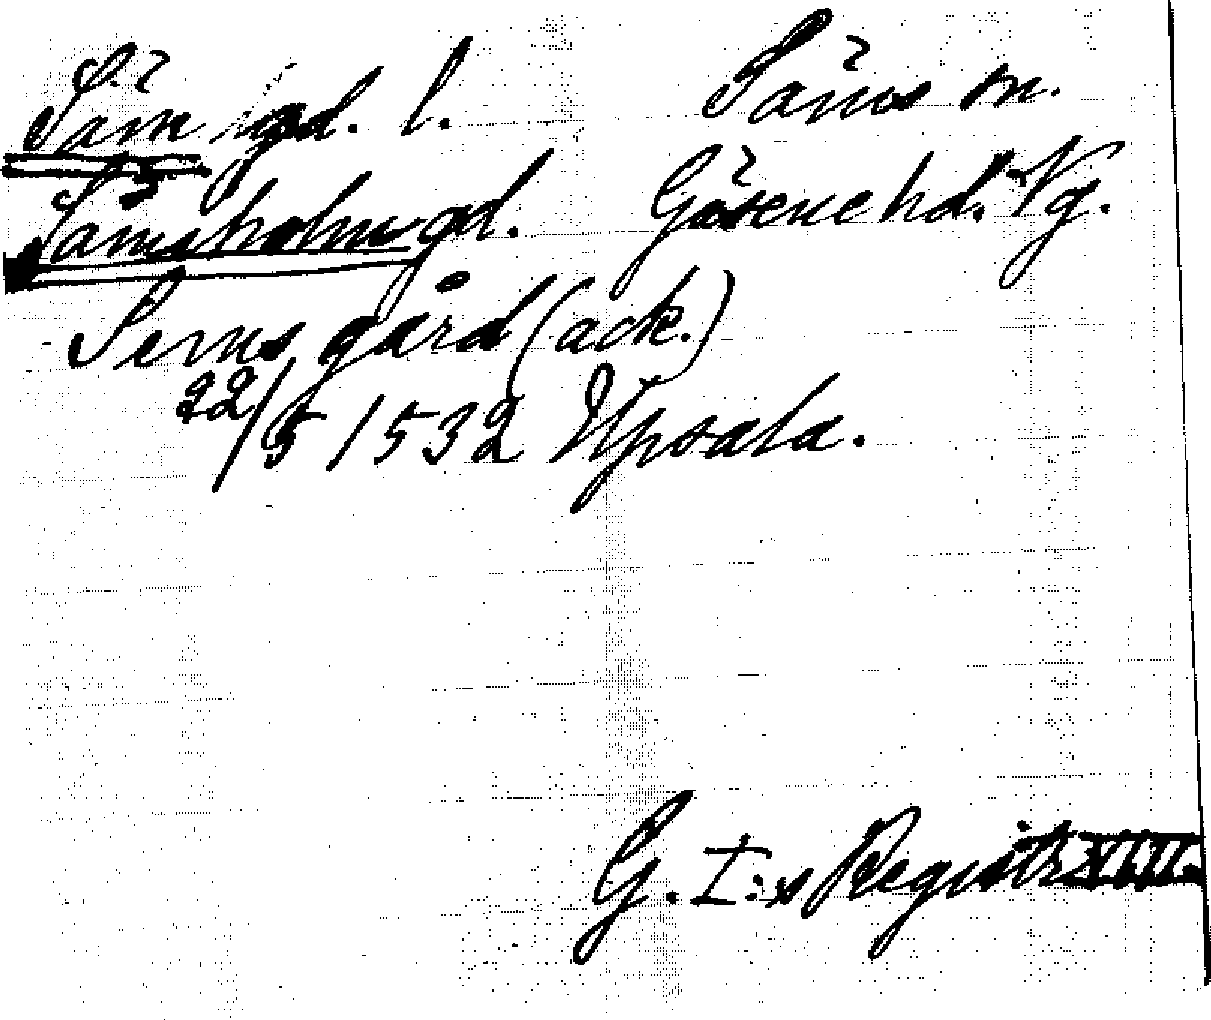 Säm gd. l. Säms sn.
Sämsholm gd. Gäsene hd. Vg.
Sems gård (ack.)
22/5 1532 Upsala.
G. I:s Registr. VIII.